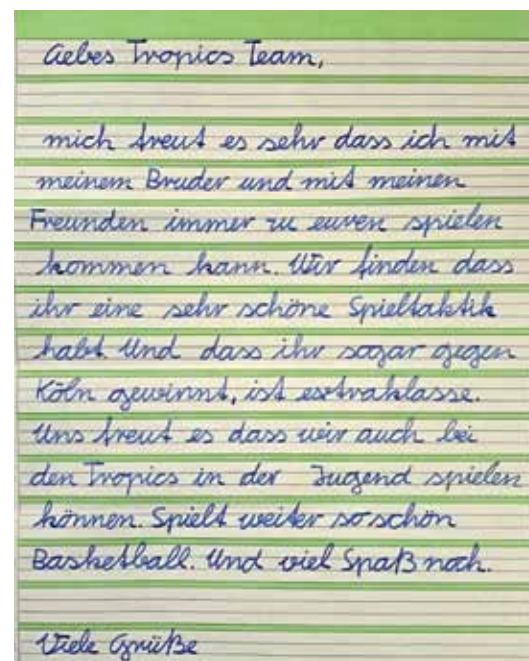 Liebes Tropics Team,
mich freut es sehr dass ich mit
meinem Bruder und mit meinen
Freunden immer zu euren spielen
kommen kann. Wir finden dass
ihr eine sehr schöne Spieltaktik
habt. Und dass ihr sogar gegen
Köln gewinnt, ist extraklasse.
Uns freut es dass wir auch bei
den Tropics in der Jugend spielen
können. Spielt weiter so schön
Basketball. Und viel Spaß noch.
Viele Grüße